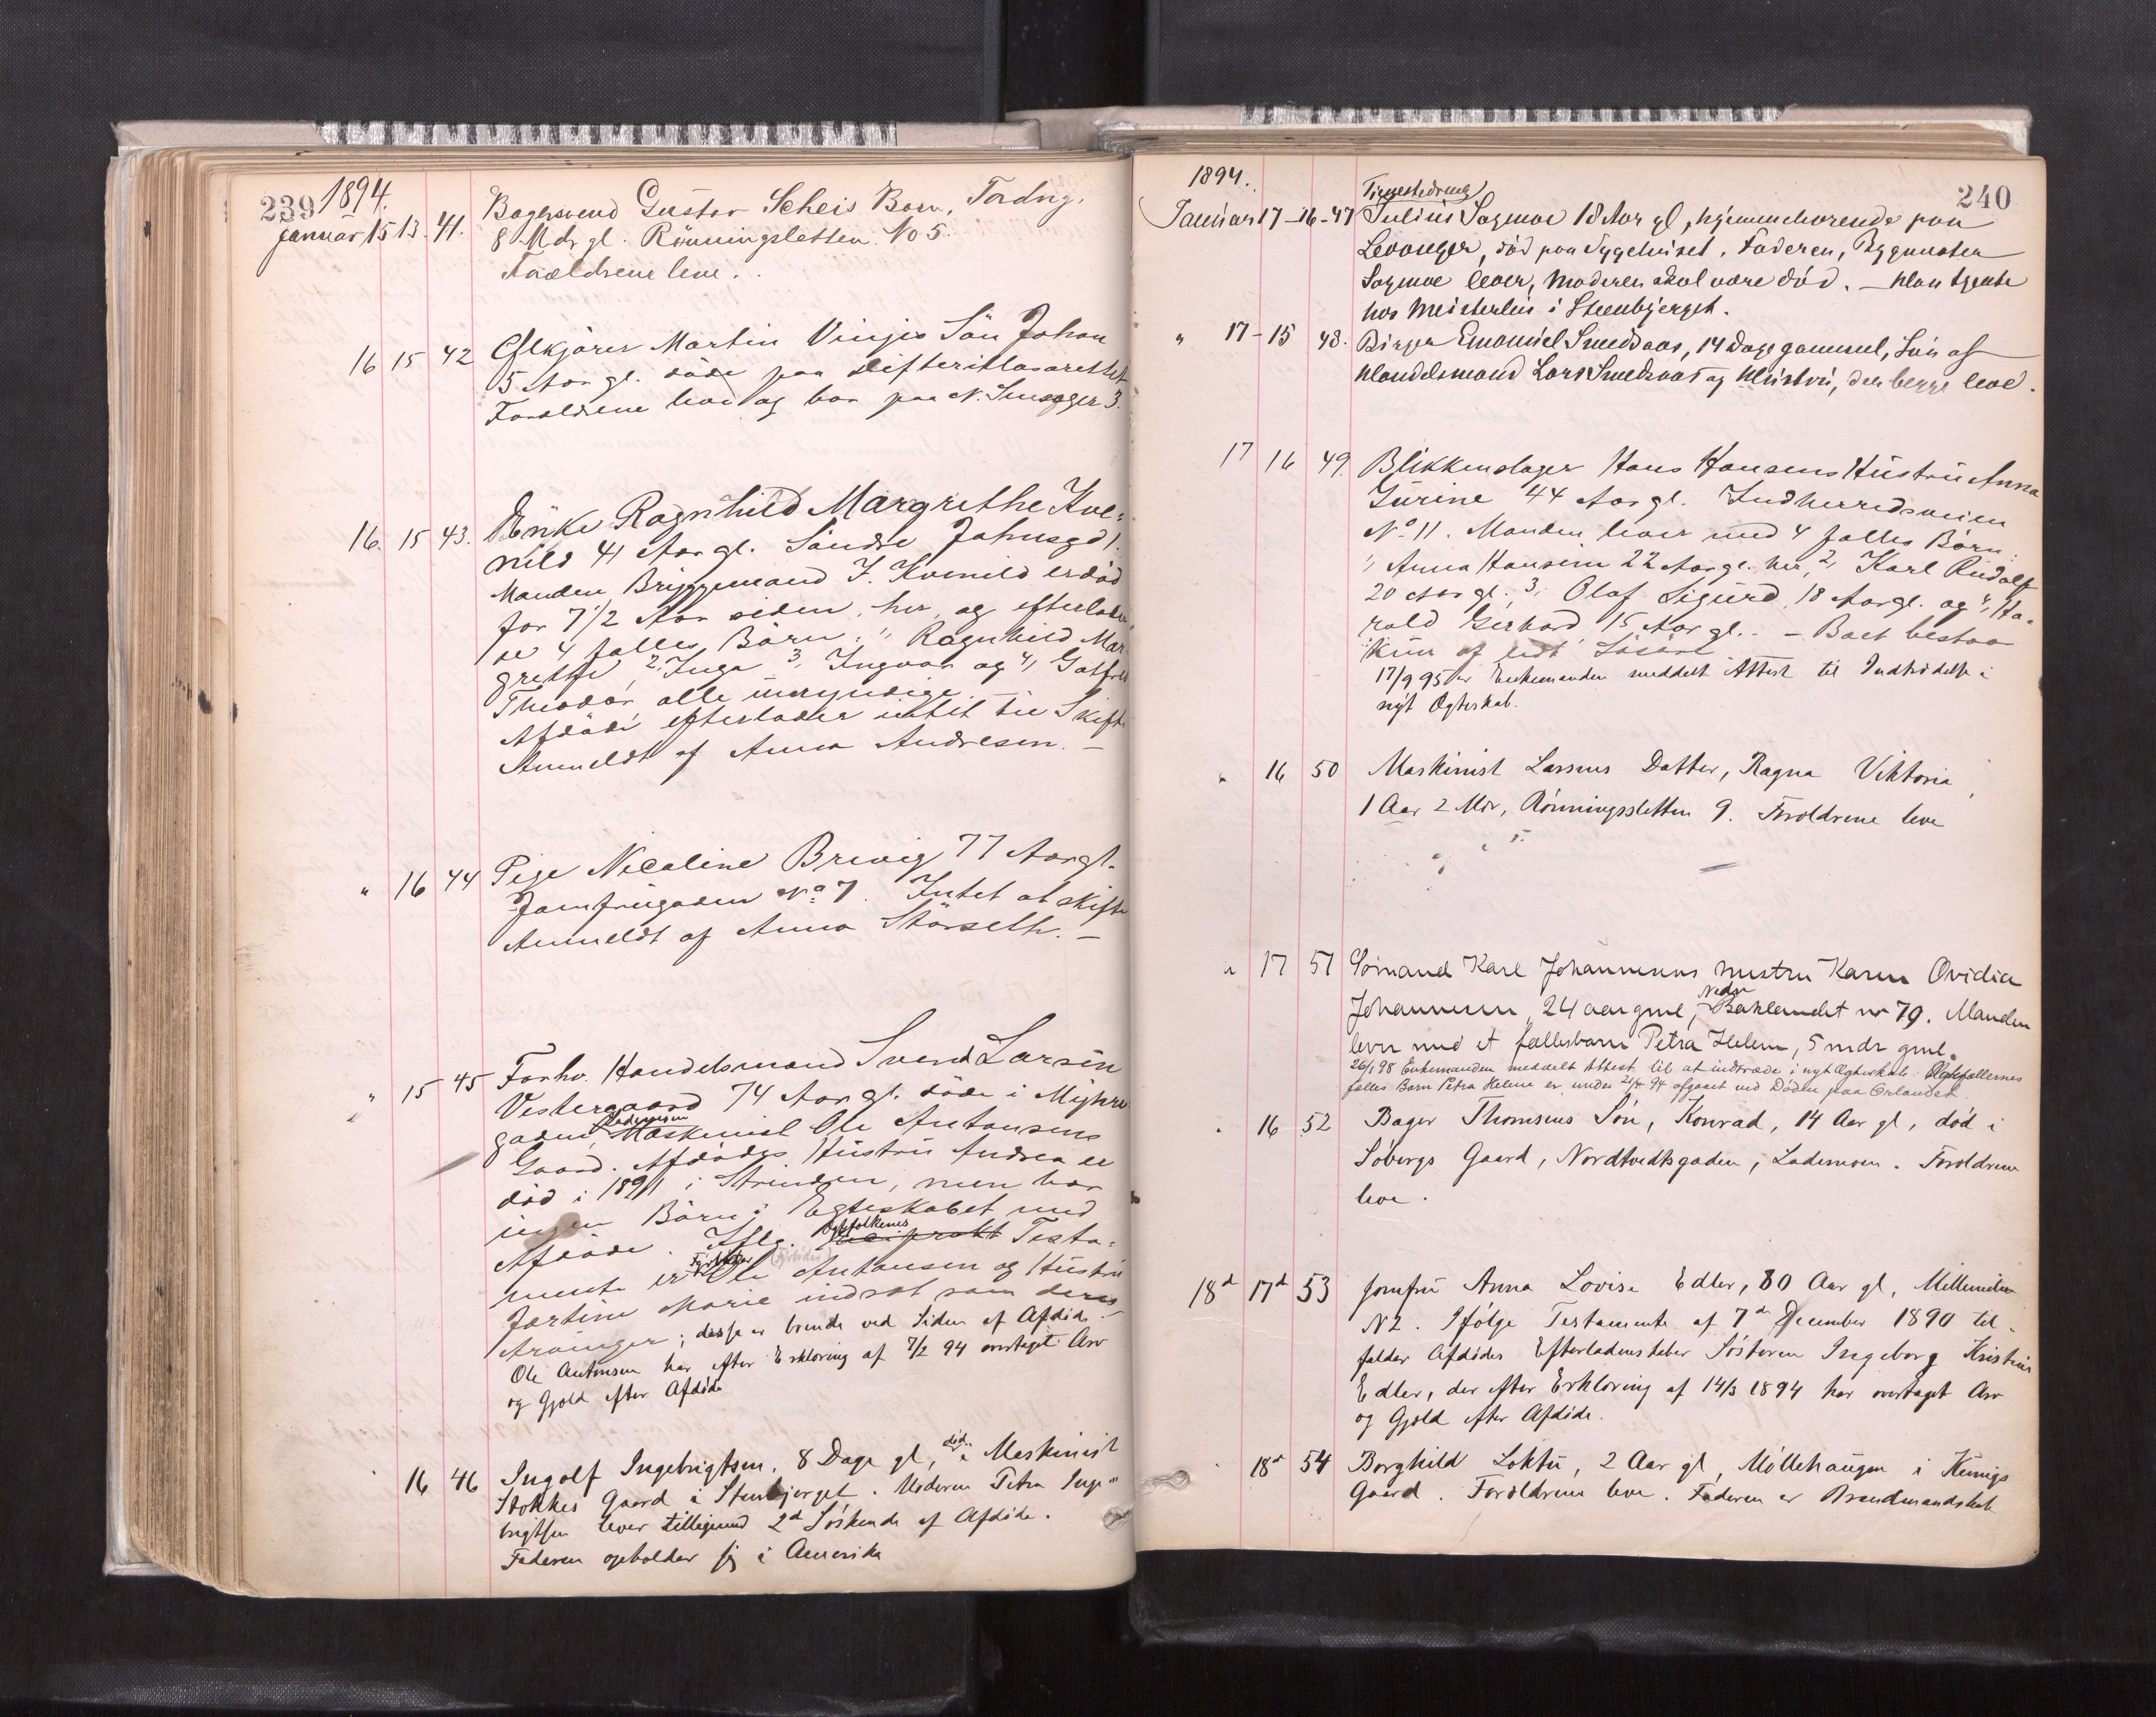 239 1894.
Januar 15 13. 41. Bagersvend Gustav Scheis Barn,
8 Mdr gl. Rönningsletten No 5.
Forældrene leve.
16 15 42 Ølkjører Martin Vinjes Sön Johan
5 Aar gl. døde paa Difteritlasarettet
Forældrene leve og bor paa N. 3.
16. 15 43. Enke Ragnhild Margrethe Kve-
nild 41 Aar gl. Søndre
Manden Bryggemand J. Kvenild er död
for 7 1/2 Aar siden, her, og efterlader
4 fælles Börn: 1, Ragnhild Mar
grethe, 2, Inga 3, Ingvar og 4, Gotfred
Theodor, alle umyndige.
Afdøde efterlader intet til Skifte
Anmeldt af Anna Andresen. —
" 16 44 Pige Nicoline Brevig 77 Aar gl.
Jomfrugaden No 7. Intet at skifte
Anmeldt af Anna Störseth. —
" 15 45 Forhv. Handelsmand Svend Larsen
Vestergaard 74 Aar gl. døde i
gaden, Lademoen Maskinist Ole Antonsens
Gaard. Afdødes Hustru Andrea er
död i 1891 i Strinden, men har
ingen Börn i Egteskabet med
Afdøde. Iflg. Egtefolkenes Reciprokt Testa-
mente er Ole Antonsen og Hustru
Jortine Marie indsat som deres
Arvinger; disse er boende ved Siden af Afdøde.
Ole Antonsen har efter Erklæring af 7/2 94 overtaget Arv
og Gjæld efter Afdøde
" 16 46 Ingolf Ingebrigtsen, 8 Dage gl, död i Maskinist
Stokkes Gaard i Stenbjerget. Moderen Petra Inge-
brigtsen lever tilligemed 2d Søskende af Afdøde.
Faderen opholder sig i Amerika
1894. 240
Januar 17-16-47 Tjenestedreng
Julius Sagmoe 18 Aar gl, hjemmehørende paa
Levanger, död paa Sygehuset. Faderen, Bygmester
Sagmoe lever, Moderen skal være död. — Han tjente
hos Meisterlin i Steenbjerget.
" 17-15 48. Birger Emanuel Smedsaas, 14 Dage gammel, Sön af
Handelsmand Lars Smedsaas og Hustru, der begge leve.
17 16 49. Blikkenslager Hans Hansens Hustru Anna
Gurine 44 Aar gl. Indherredsveien
No 11. Manden lever med 4 fælles Börn:
1, Anna Hansine 22 Aar gl. her, 2, Karl Rudolf
20 Aar gl. 3, Olaf Sigurd 18 Aar gl. og 4, Ha-
rald Gerhard 15 Aar gl. — Boet bestaar
kun af lidt Lösöre
17/9 95 er Enkemanden meddelt Attest til Indtrædelse i
nyt Ægteskab.
" 16 50 Maskinist Larsens Datter, Ragna Viktoria,
1 Aar 2 Mdr, Rønningsletten 9. Forældrene leve
" 17 51 Sömand Karl Johannesens hustru Karen Ovidia
Johannesen, 24 aar gml, Nedre Baklandet no 79. Manden
lever med et fællesbarn Petra Helene, 5 mdr gml.
26/1 98 Enkemanden meddelt Attest til at indtræde i nyt Ægteskab. Ægtefællernes
fælles Barn Petra Helene er under 94 afgaaet ved Døden paa Ørlandet.
" 16 52 Bager Thomsens Sön, Konrad, 14 Aar gl, död i
Söbergs Gaard, Nordtvedtsgaden, Lademoen. Forældrene
leve.
18d 17d 53 Jomfru Anna Lovise Edler, 80 Aar gl, Mellemila
N2. Ifølge Testamente af 7de December 1890 til-
falder Afdødes Efterladenskaber Søsteren Ingeborg Kristine
Edler, der efter Erklæring af 14/3 1894 har overtaget Arv
og Gjæld efter Afdøde.
" 18d 54 Borghild Loktu, 2 Aar gl, Møllehaugen i Kunigs
Gaard. Forældrene leve. Faderen er Brandmandskab